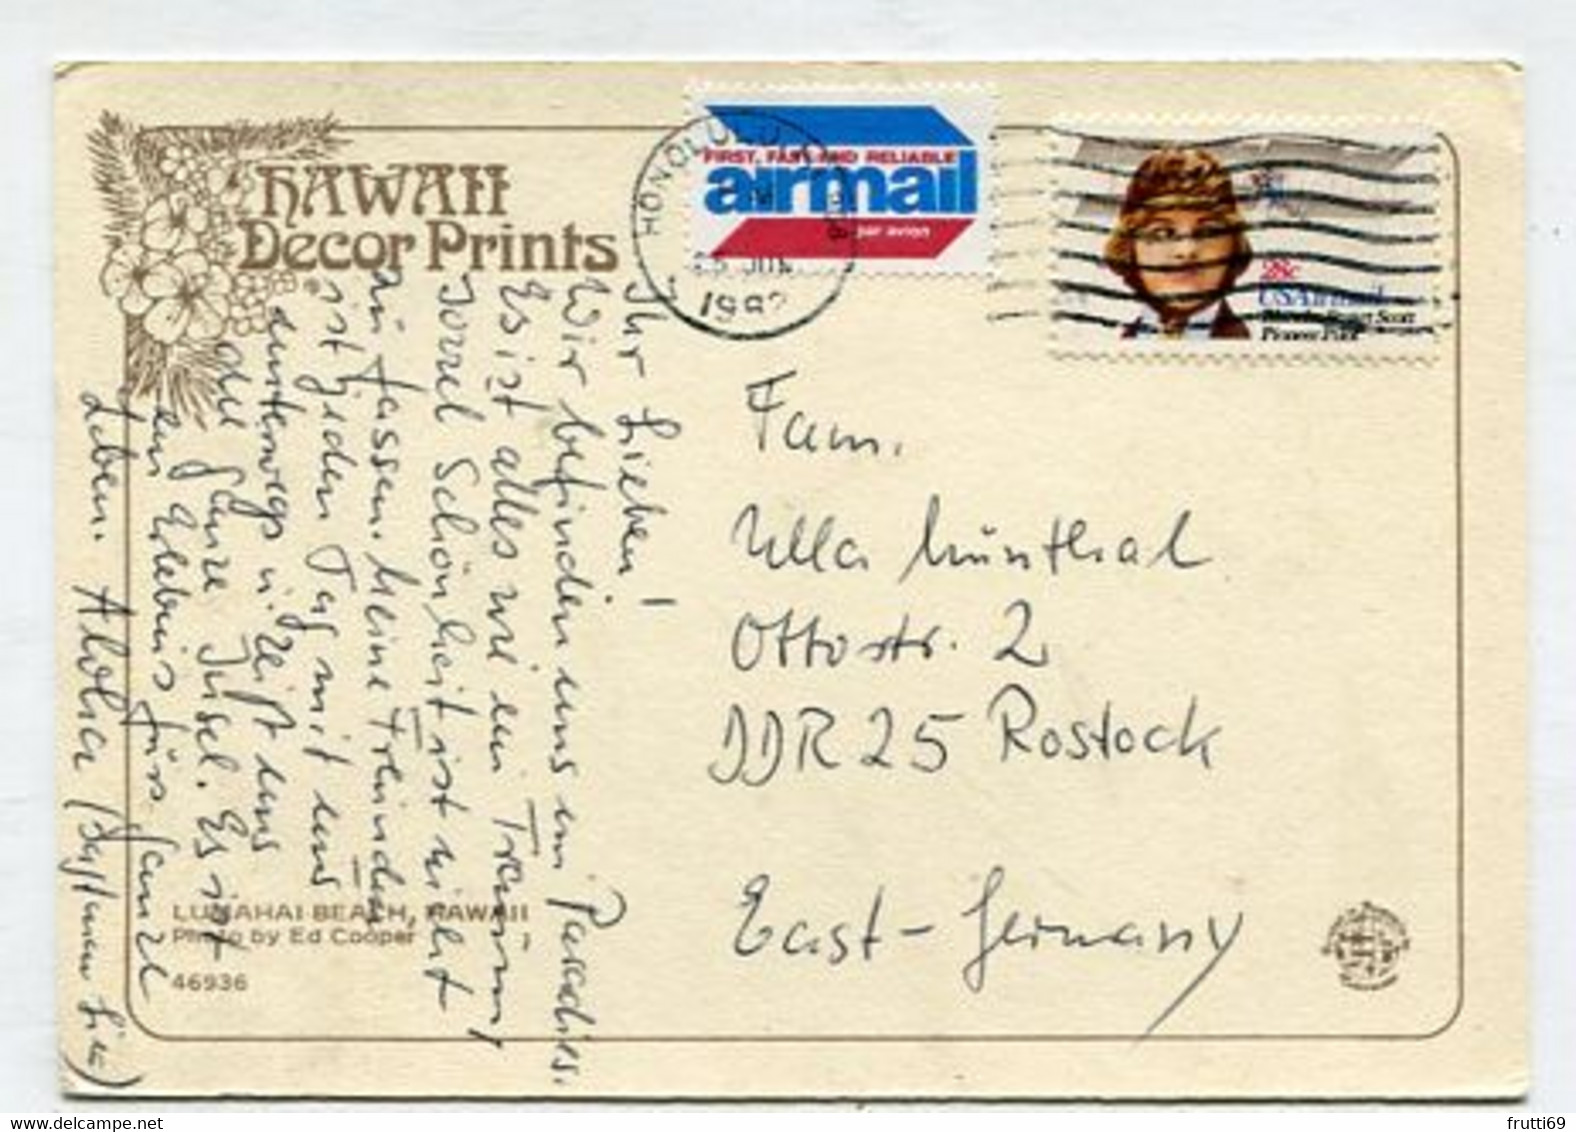 HAWAII
Decor Prints
HONOLULU
25 JUN
1982
FIRST, FAST AND RELIABLE
airmail
par avion
28c
USAirmail
Blanche Stuart Scott
Pioneer Pilot
Ihr Lieben!
Wir befinden uns im Paradies.
Es ist alles wie ein Traum!
Soviel Schönheit ist nicht
zu fassen. Meine Freundin
ist jeden Tag mit uns
unterwegs u. zeigt uns
die ganze Insel. Es ist
ein Erlebnis fürs ganze
Leben. Aloha
Fam.
Ulla Münthal
Ottostr. 2
DDR 25 Rostock
East-Germany
LUMAHAI BEACH, HAWAII
Photo by Ed Cooper
46936
frutti69